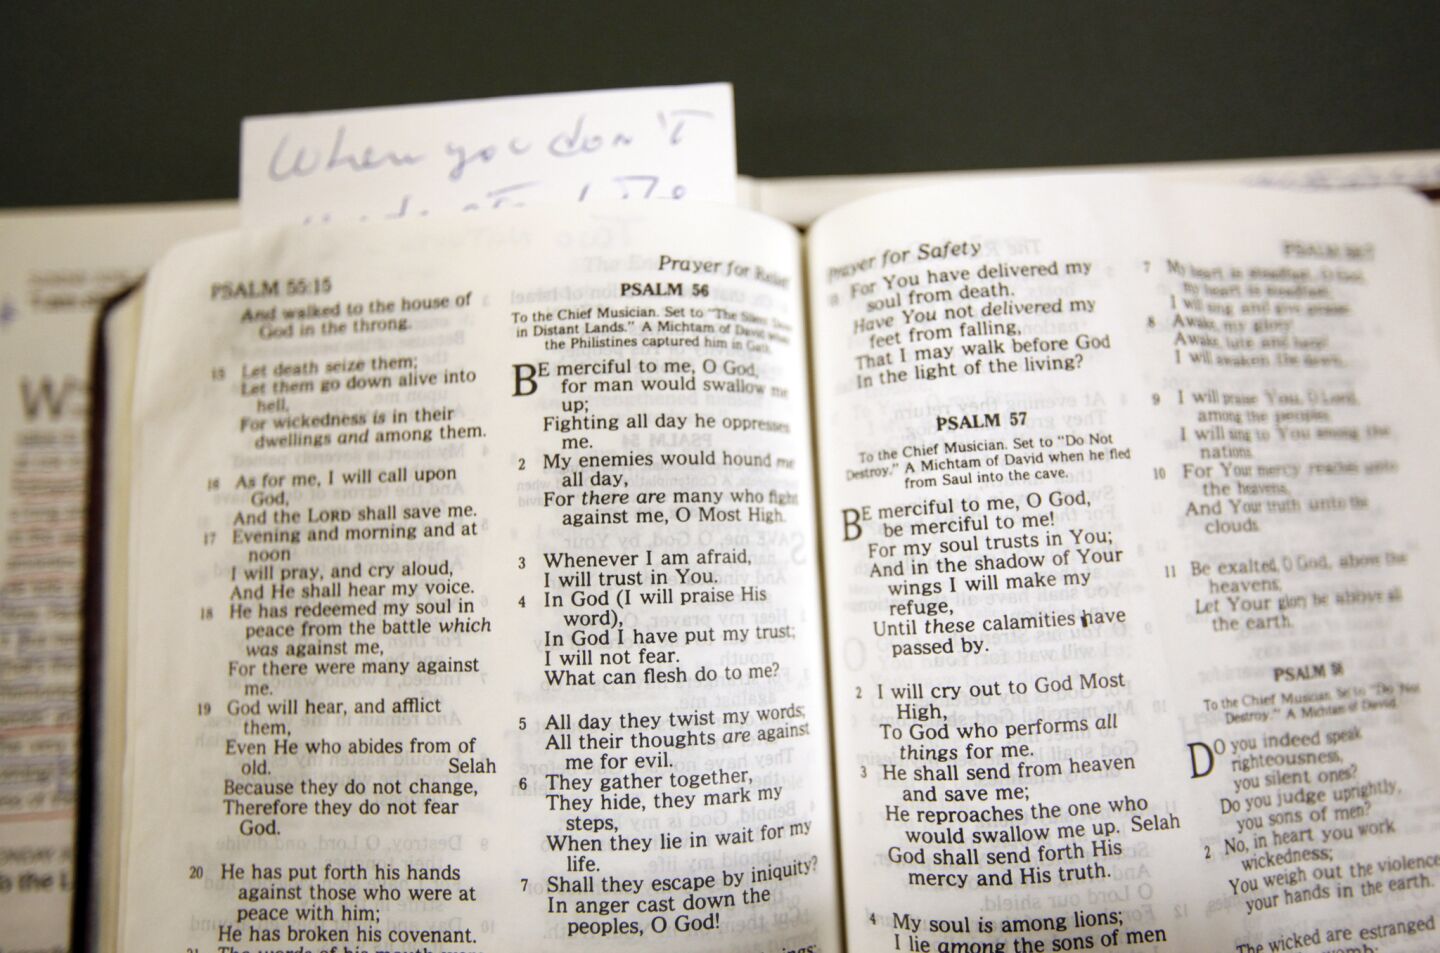 When you don't
PSALM 55:15
And walked to the house of
God in the throng.
15 Let death seize them;
Let them go down alive into
hell,
For wickedness is in their
dwellings and among them.
16 As for me, I will call upon
God,
And the LORD shall save me.
17 Evening and morning and at
noon
I will pray, and cry aloud,
And He shall hear my voice.
18 He has redeemed my soul in
peace from the battle which
was against me,
For there were many against
me.
19 God will hear, and afflict
them,
Even He who abides from of
old. Selah
Because they do not change,
Therefore they do not fear
God.
20 He has put forth his hands
against those who were at
peace with him;
He has broken his covenant.
21 The words of his mouth were
Prayer for Relief
PSALM 56
To the Chief Musician. Set to "The Silent Dove
in Distant Lands." A Michtam of David when
the Philistines captured him in Gath.
BE merciful to me, O God,
for man would swallow me
up;
Fighting all day he oppresses
me.
2 My enemies would hound me
all day,
For there are many who fight
against me, O Most High.
3 Whenever I am afraid,
I will trust in You.
4 In God (I will praise His
word),
In God I have put my trust;
I will not fear.
What can flesh do to me?
5 All day they twist my words;
All their thoughts are against
me for evil.
6 They gather together,
They hide, they mark my
steps,
When they lie in wait for my
life.
7 Shall they escape by iniquity?
In anger cast down the
peoples, O God!
Prayer for Safety
For You have delivered my
soul from death.
Have You not delivered my
feet from falling,
That I may walk before God
In the light of the living?
PSALM 57
To the Chief Musician. Set to "Do Not
Destroy." A Michtam of David when he fled
from Saul into the cave.
BE merciful to me, O God,
be merciful to me!
For my soul trusts in You;
And in the shadow of Your
wings I will make my
refuge,
Until these calamities have
passed by.
2 I will cry out to God Most
High,
To God who performs all
things for me.
3 He shall send from heaven
and save me;
He reproaches the one who
would swallow me up. Selah
God shall send forth His
mercy and His truth.
4 My soul is among lions;
I lie among the sons of men
PSALM
7 My heart is steadfast, O God,
my heart is steadfast;
I will sing and give praise.
8 Awake, my glory!
Awake, lute and harp!
I will awaken the dawn.
9 I will praise You, O Lord,
among the peoples;
I will sing to You among the
nations.
10 For Your mercy reaches unto
the heavens,
And Your truth unto the
clouds.
11 Be exalted, O God, above the
heavens;
Let Your glory be above all
the earth.
PSALM 58
To the Chief Musician. Set to "Do Not
Destroy." A Michtam of David.
DO you indeed speak
righteousness,
you silent ones?
Do you judge uprightly,
you sons of men?
2 No, in heart you work
wickedness;
You weigh out the violence
your hands in the earth.
The wicked are estranged
womb;